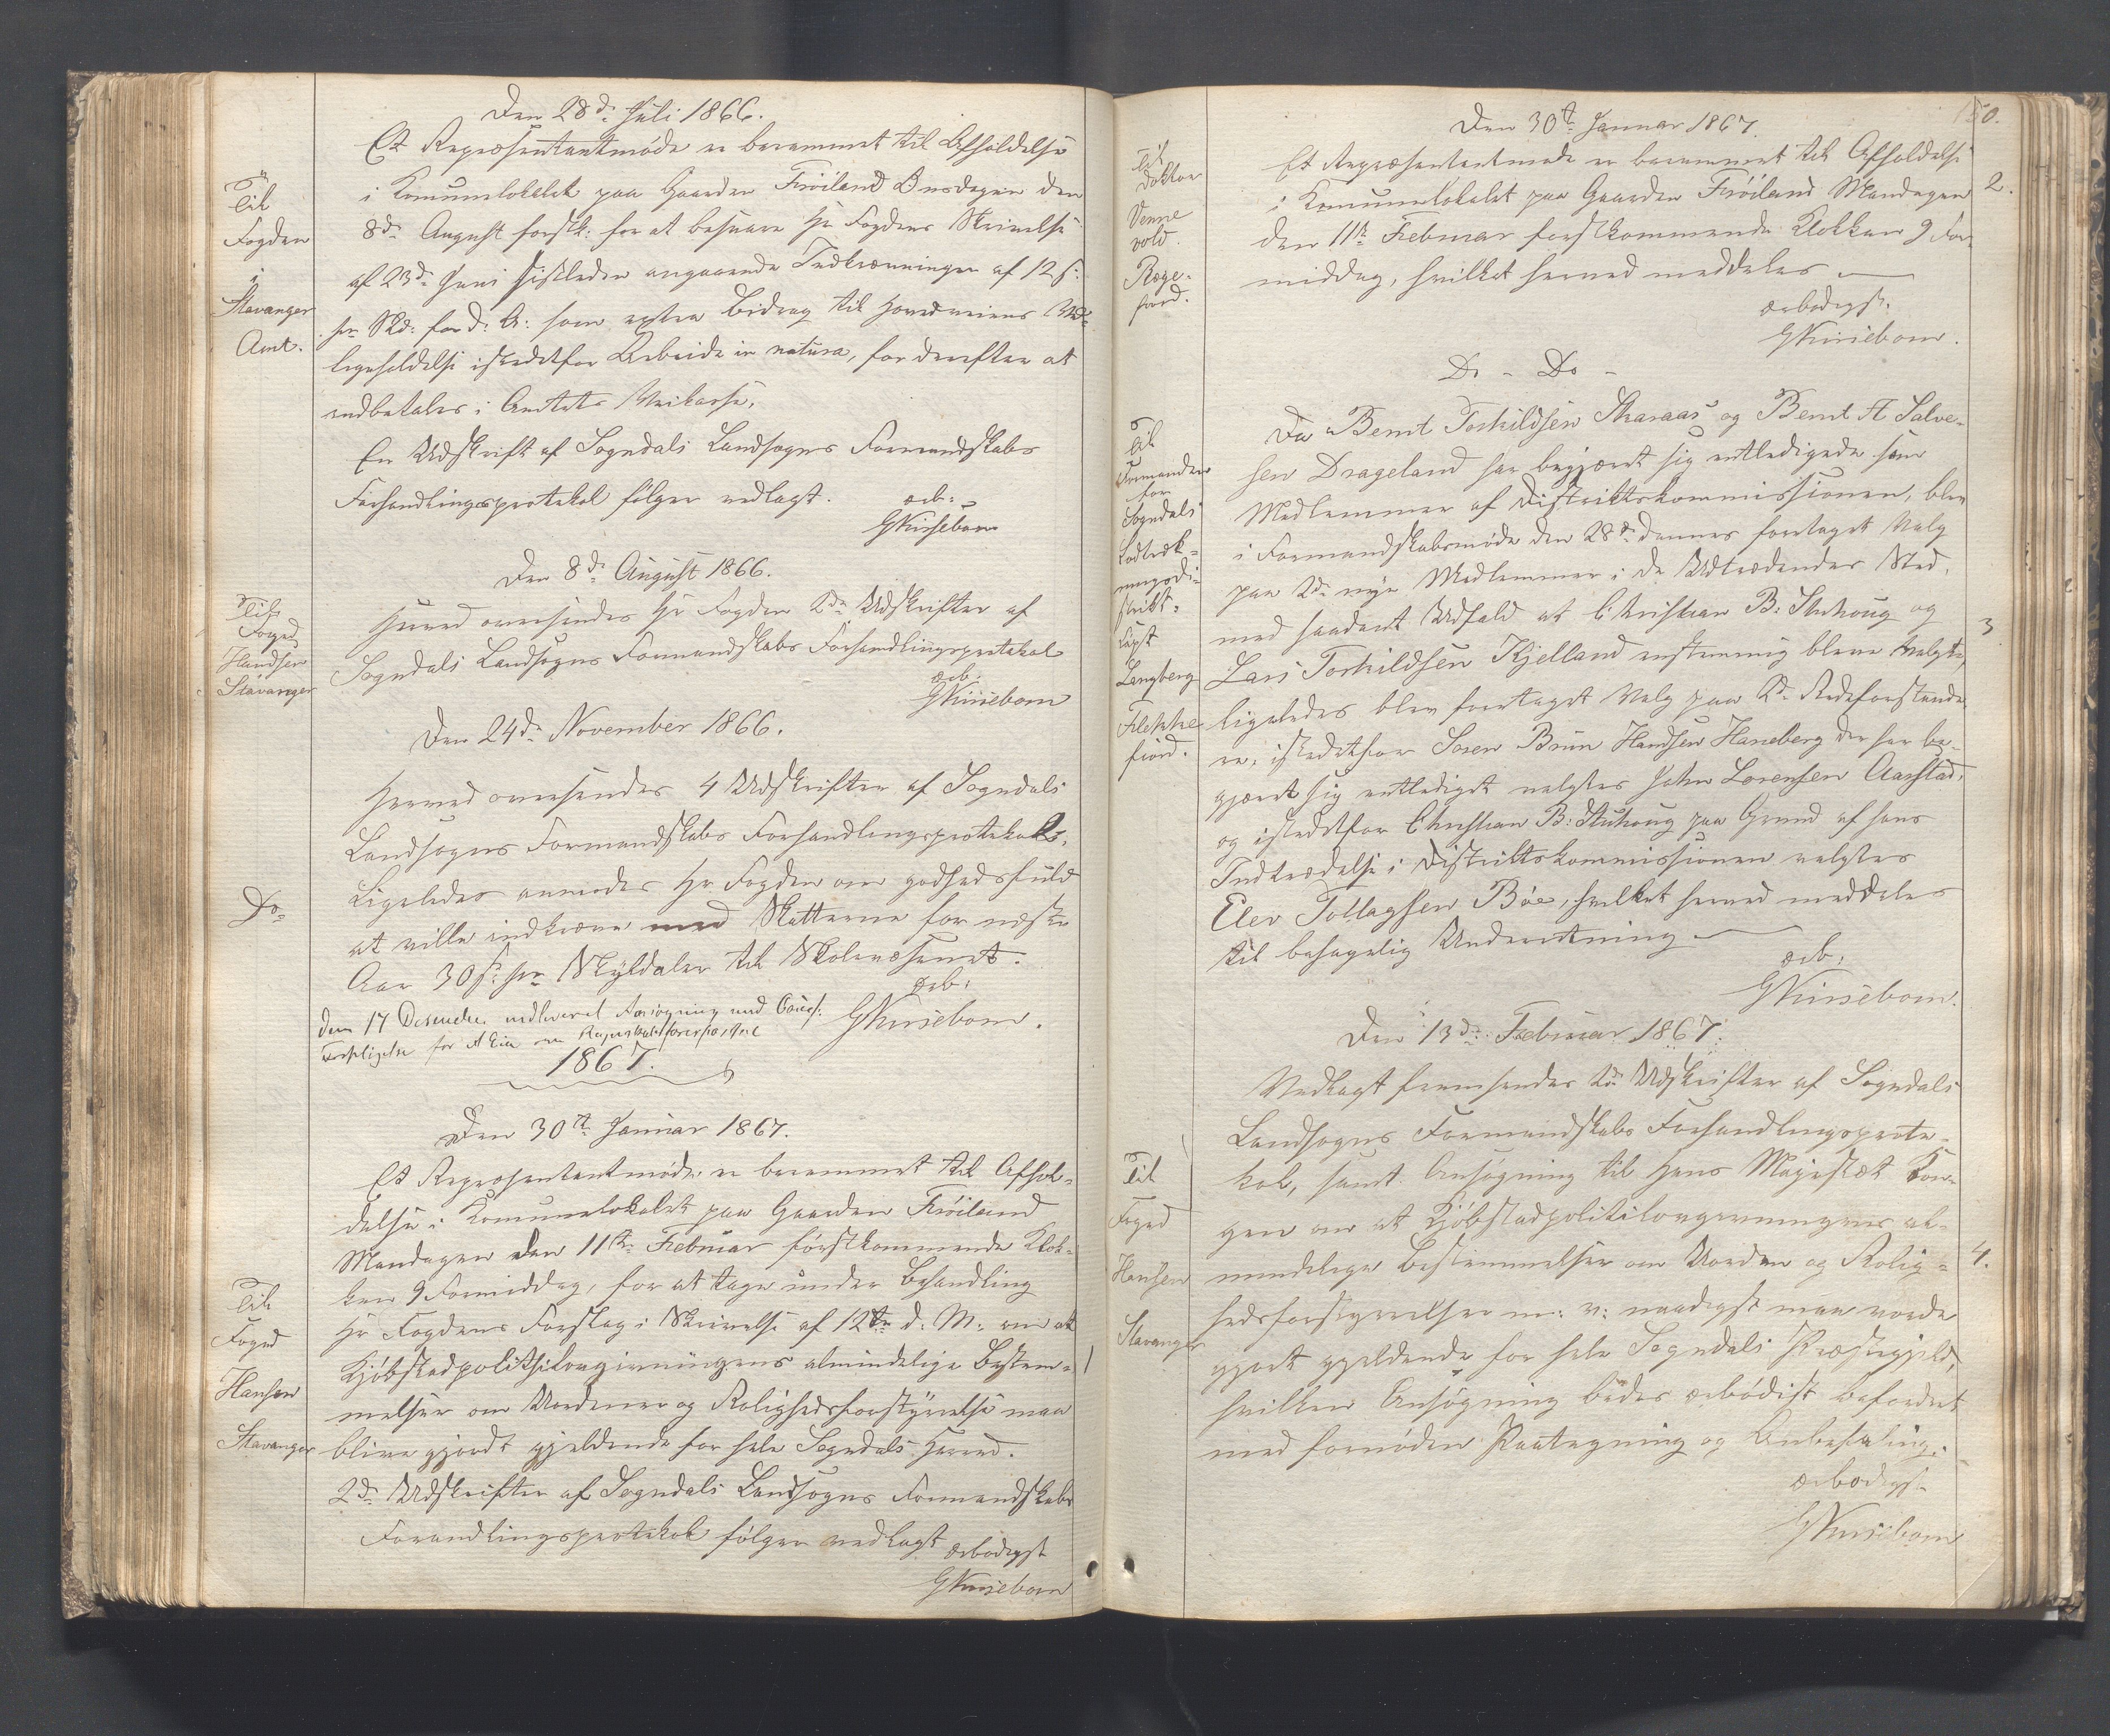 Den 28d. Juli 1866.
Til
Fogden
i
Stavanger
Amt.
Et Repræsentantmøde er berammet til Afholdelse
i Komunelokalet paa Gaarden Frøiland Onsdagen den
8de August førstk: for at besvare Hr Fogdens Skrivelse
af 23de Juni sistleden angaaende Indkrævningen af 12 s:
pr Skd: for d: A: som extra Bidrag til Hovedveiens Ved-
ligeholdelse istedetfor Arbeide in natura, for derefter at
indbetales i Amtets Veikasse.
En Udskrift af Sogndals Landsogns Formandskabs
Forhandlingsprotokol følger vedlagt.
ærb:
GKirsebom
Den 8de August 1866.
Til
Foged
Handsen
Stavanger
Herved oversendes Hr Fogden 2de Udskrifter af
Sogndals Landsogns Formandskabs Forhandlingsprotokol
ærb:
GKirsebom
Den 24de November 1866.
Do
Herved oversendes 4 Udskrifter af Sogndals
Landsogns Formandskabs Forhandlingsprotokol.
Ligeledes anmodes Hr. Fogden om godhedsfuld
at ville indkræve med Skatterne for næste
Aar 30 s: pr Skyldaler til Skolevæsenet.
ærb:
GKirsebom.
den 17 Desember indleveret Ansøgning
for
1867.
Den 30te Januar 1867.
Til
Foged
Hansen
Stavanger
Et Repræsentantmøde er berammet til Afhol-
delse i Komunelokalet paa Gaarden Frøiland
Mandagen den 11te Februar førstkommende Klok-
ken 9 Formiddag, for at tage under Behandling
Hr Fogdens Forslag i Skrivelse af 12te d. M. om at
Kjøbstadpolitilovgivningens almindelige Bestem- 1
melser om Uordener og Rolighedsforstyrrelse maa
blive gjordt gjeldende for hele Sogndals Herred.
2de Udskrifter af Sogndals Landsogns Formandskabs
Forandlingsprotokol følger vedlagt
ærbødigst
GKirsebom
150.
Den 30te Januar 1867.
Til
Doktor
Venne
vold.
Ræge-
fjord.
Et Repræsentantmøde er berammet til Afholdelse
i Komunelokalet paa Gaarden Frøiland Mandagen 2.
den 11te Februar førstkommende Klokken 9 For-
middag, hvilket herved meddeles
ærbødigst.
GKirsebom.
Do - Do -
Til
Formanden
for
Sogndals
Lodtræk-
ningsdi-
strikt:
Langberg
Flekke
fiord.
Da Bernt Torkildsen Skaraas og Bernt A Salve-
sen Drageland har begjæret sig entledigede som
Medlemmer af Distriktskommissionen, blev
i Formandskabsmøde den 28de dennes foretaget Valg
paa 2de nye Medlemmer i de Udtrædendes Sted,
med saadant Udfald at Christian B: Stuhoug og 3
Lars Torkildsen Kjelland enstemmig bleve valgte,
ligeledes blev foretaget Valg paa 2de Rodeforstande
re; istedetfor Soren Brun Handsen Haneberg der har be-
gjært sig entlediget valgtes John Lorensen Aarstad,
og istedetfor Christian B: Stuhoug paa Grund af hans
Indtrædelse i Distriktskommissionen valgtes
Elev Tollagsen Bøe, hvilket herved meddeles
til behagelig Underretning
ærb:
GKirsebom.
Den 13de Februar 1867.
Til
Foged
Hansen
Stavanger
Vedlagt fremsendes 2de Udskrifter af Sogndals
Landsogns Formandskabs Forhandlingsproto-
kol, samt Ansøgning til Hans Majestæt Kon-
gen om at Kjøbstadpolitilovgivningens al-
mindelige Bestemmelser om Uorden og Rolig- 4.
hedsforstyrrelser m: v: naadigst maa vorde
gjort gjeldende for hele Sogndals Præstegjeld,
hvilken Ansøgning bedes ærbødist befordret
med fornøden Paategning og Anbefaling.
ærbødigst
GKirsebom